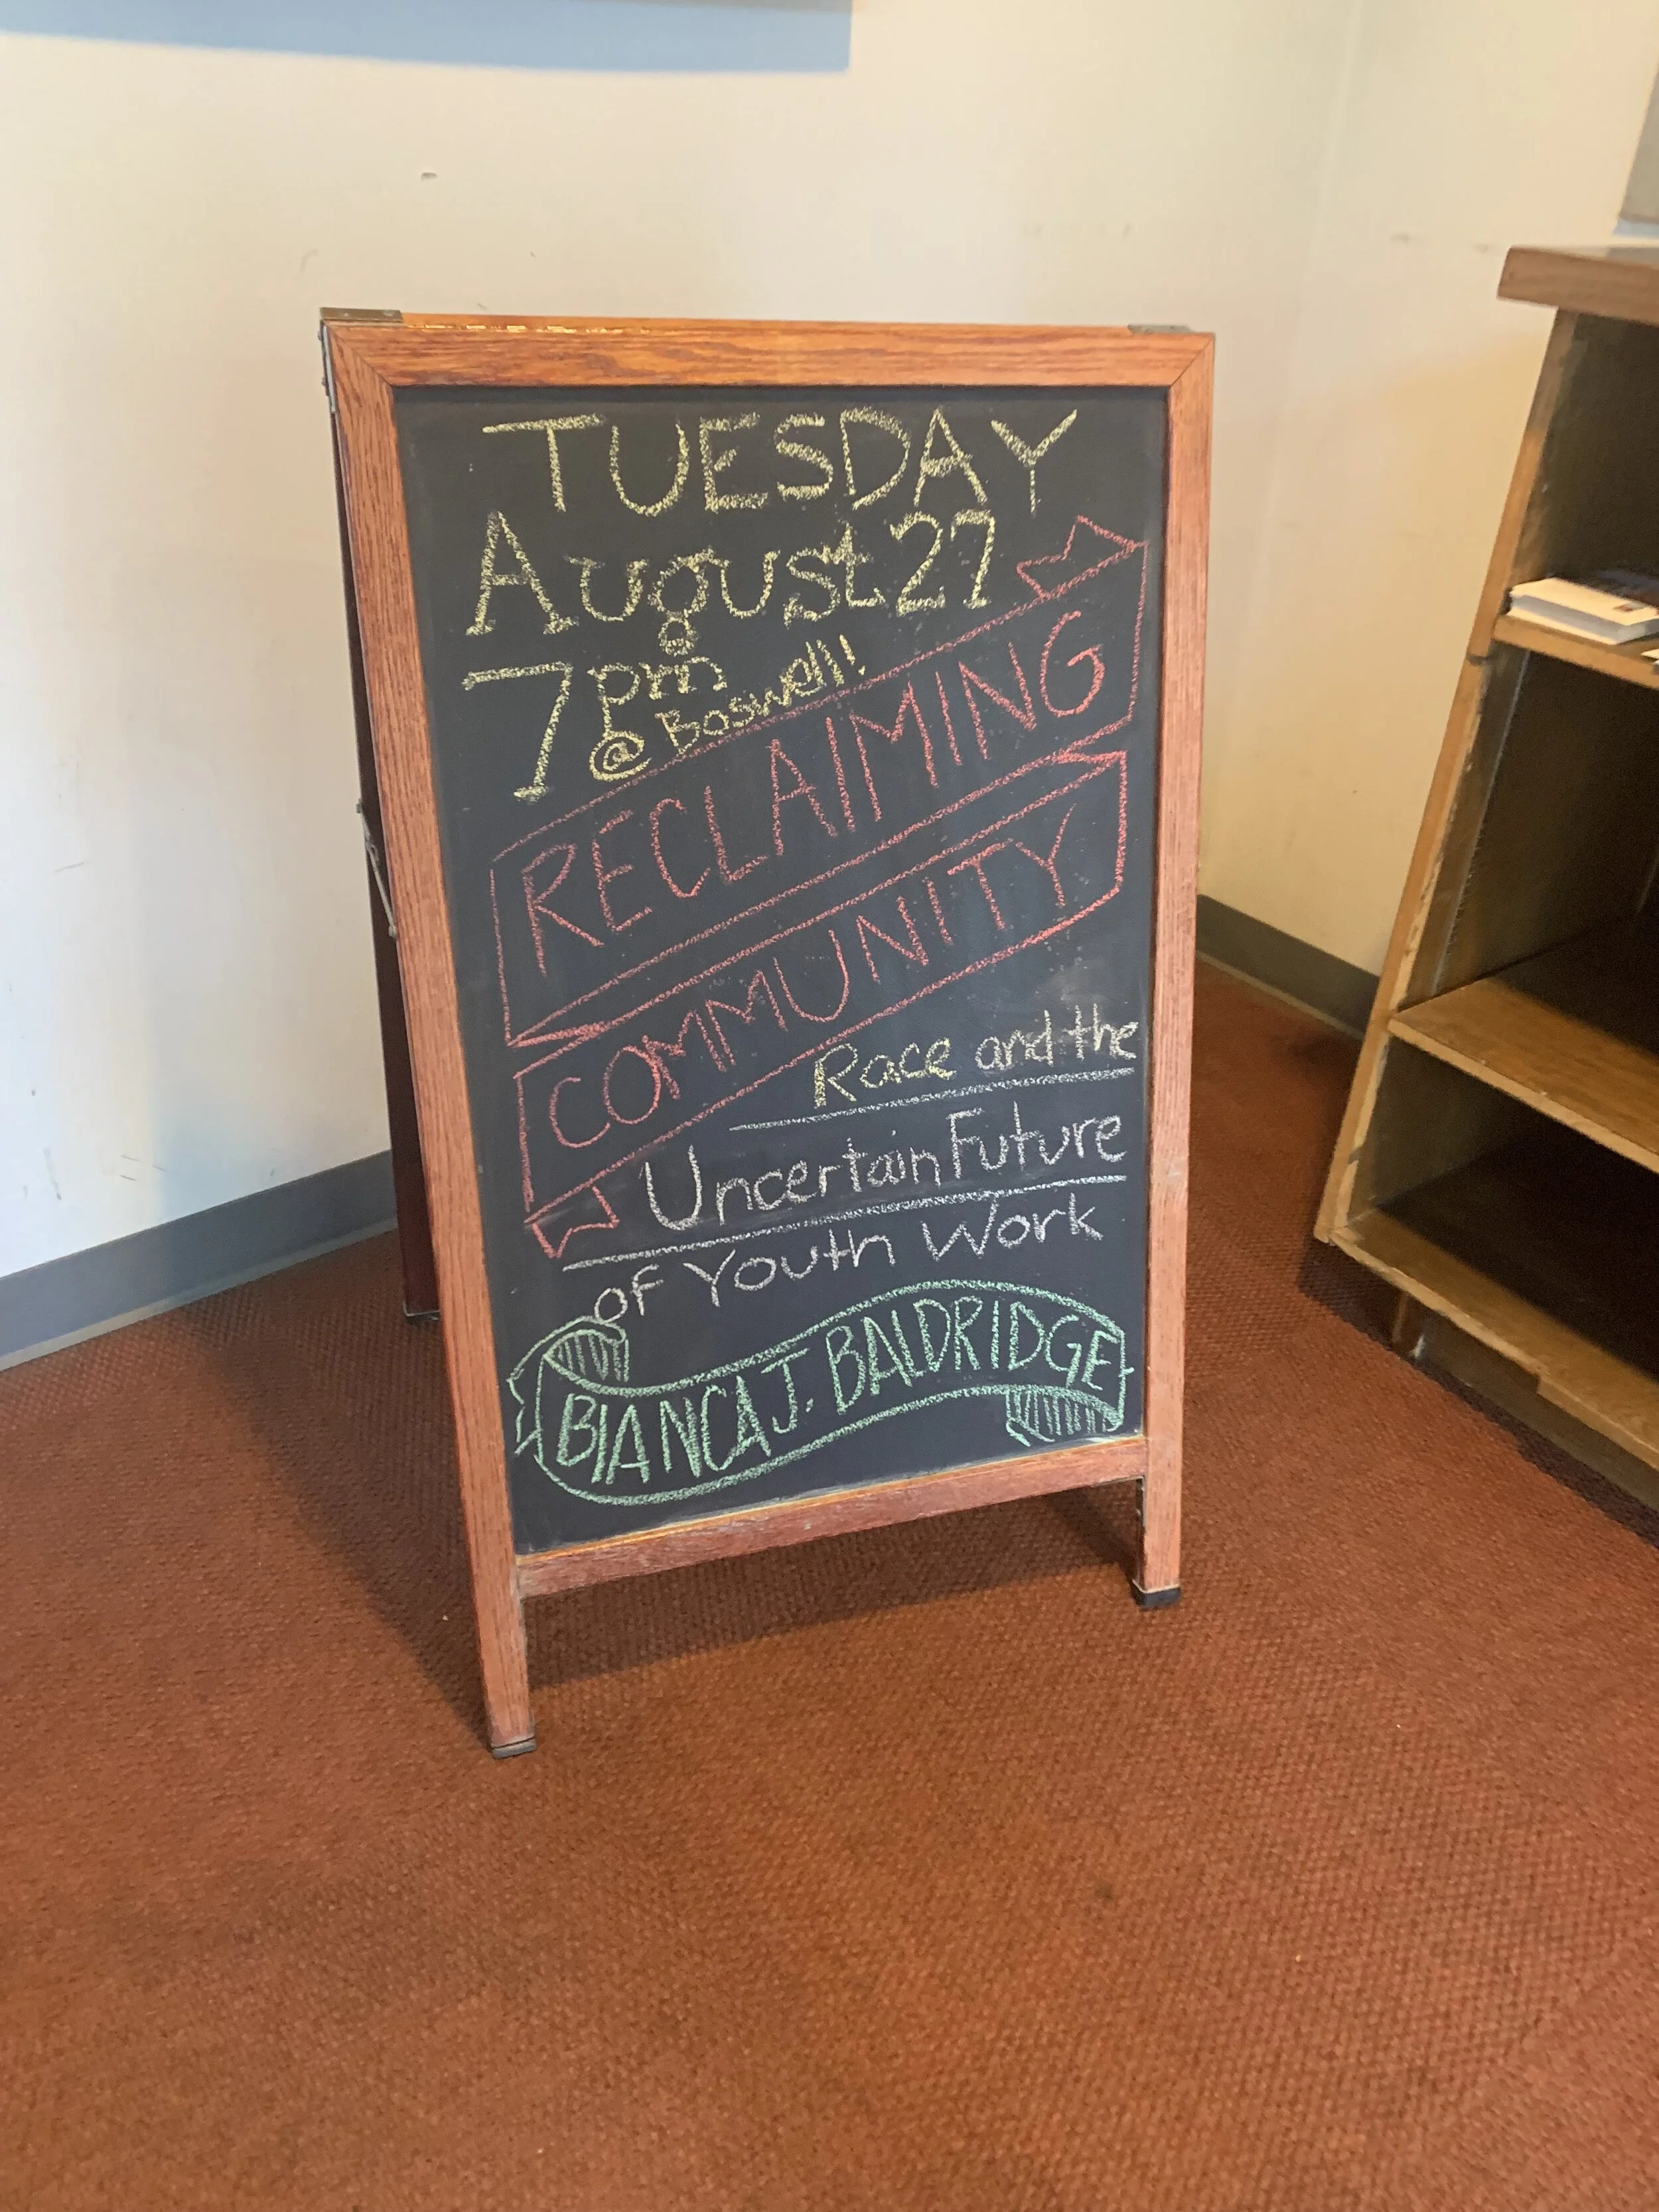 TUESDAY
August 27
7pm
@ Boswell!
RECLAIMING
COMMUNITY
Race and the
Uncertain Future
of Youth Work
BIANCA J. BALDRIDGE